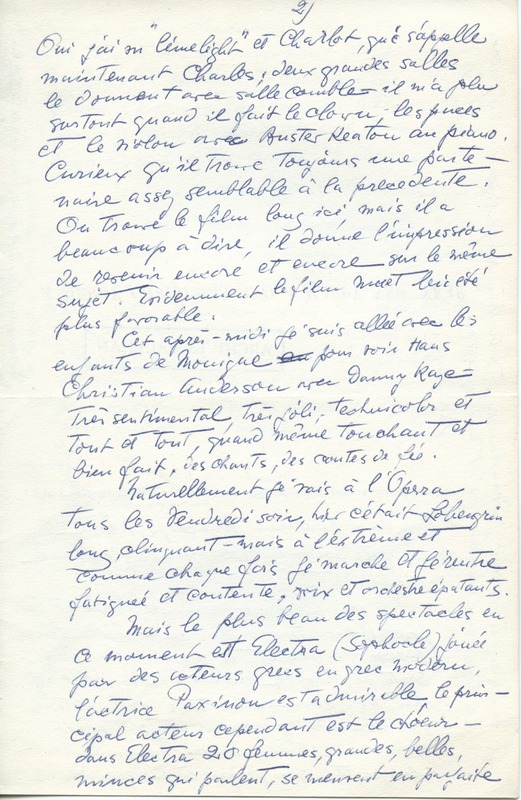 2)
Oui j'ai vu "limelight" et Charlot, qui s'appelle
maintenant Charles, deux grandes salles
le donnent avec salle comble – il m'a plu
surtout quand il fait le clown, les puces
et le violon avec Buster Keaton au piano.
Curieux qu'il trouve toujours une parte-
naire assez semblable à la precedente.
On trouve le film long ici mais il a
beaucoup à dire, il donne l'impression
de revenir encore et encore sur le même
sujet. Evidemment le film muet lui été
plus favorable.
Cet après-midi je suis allée avec les
enfants de Monique pour voir Hans
Christian Anderson avec Danny Kaye –
Très sentimental, très joli, technicolor et
tout et tout, quand même touchant et
bien fait, des chants, des contes de fé.
Naturellement je vais à l'Opera
tous les Vendredi soir, hier c'était Lohengrin
long, clinquant – mais à l'extrème et
comme chaque fois je marche et je rentre
fatiguée et contente, voix et orchestre épatants.
Mais le plus beau des spectacles en
ce moment est Electra (Sophocle) jouée
par des acteurs grecs en grec modern,
l'actrice Paxinou est admirable le prin-
cipal acteur cependant est le choeur –
dans Electra 20 femmes, grandes, belles,
minces qui parlent, se meuvent en parfaite